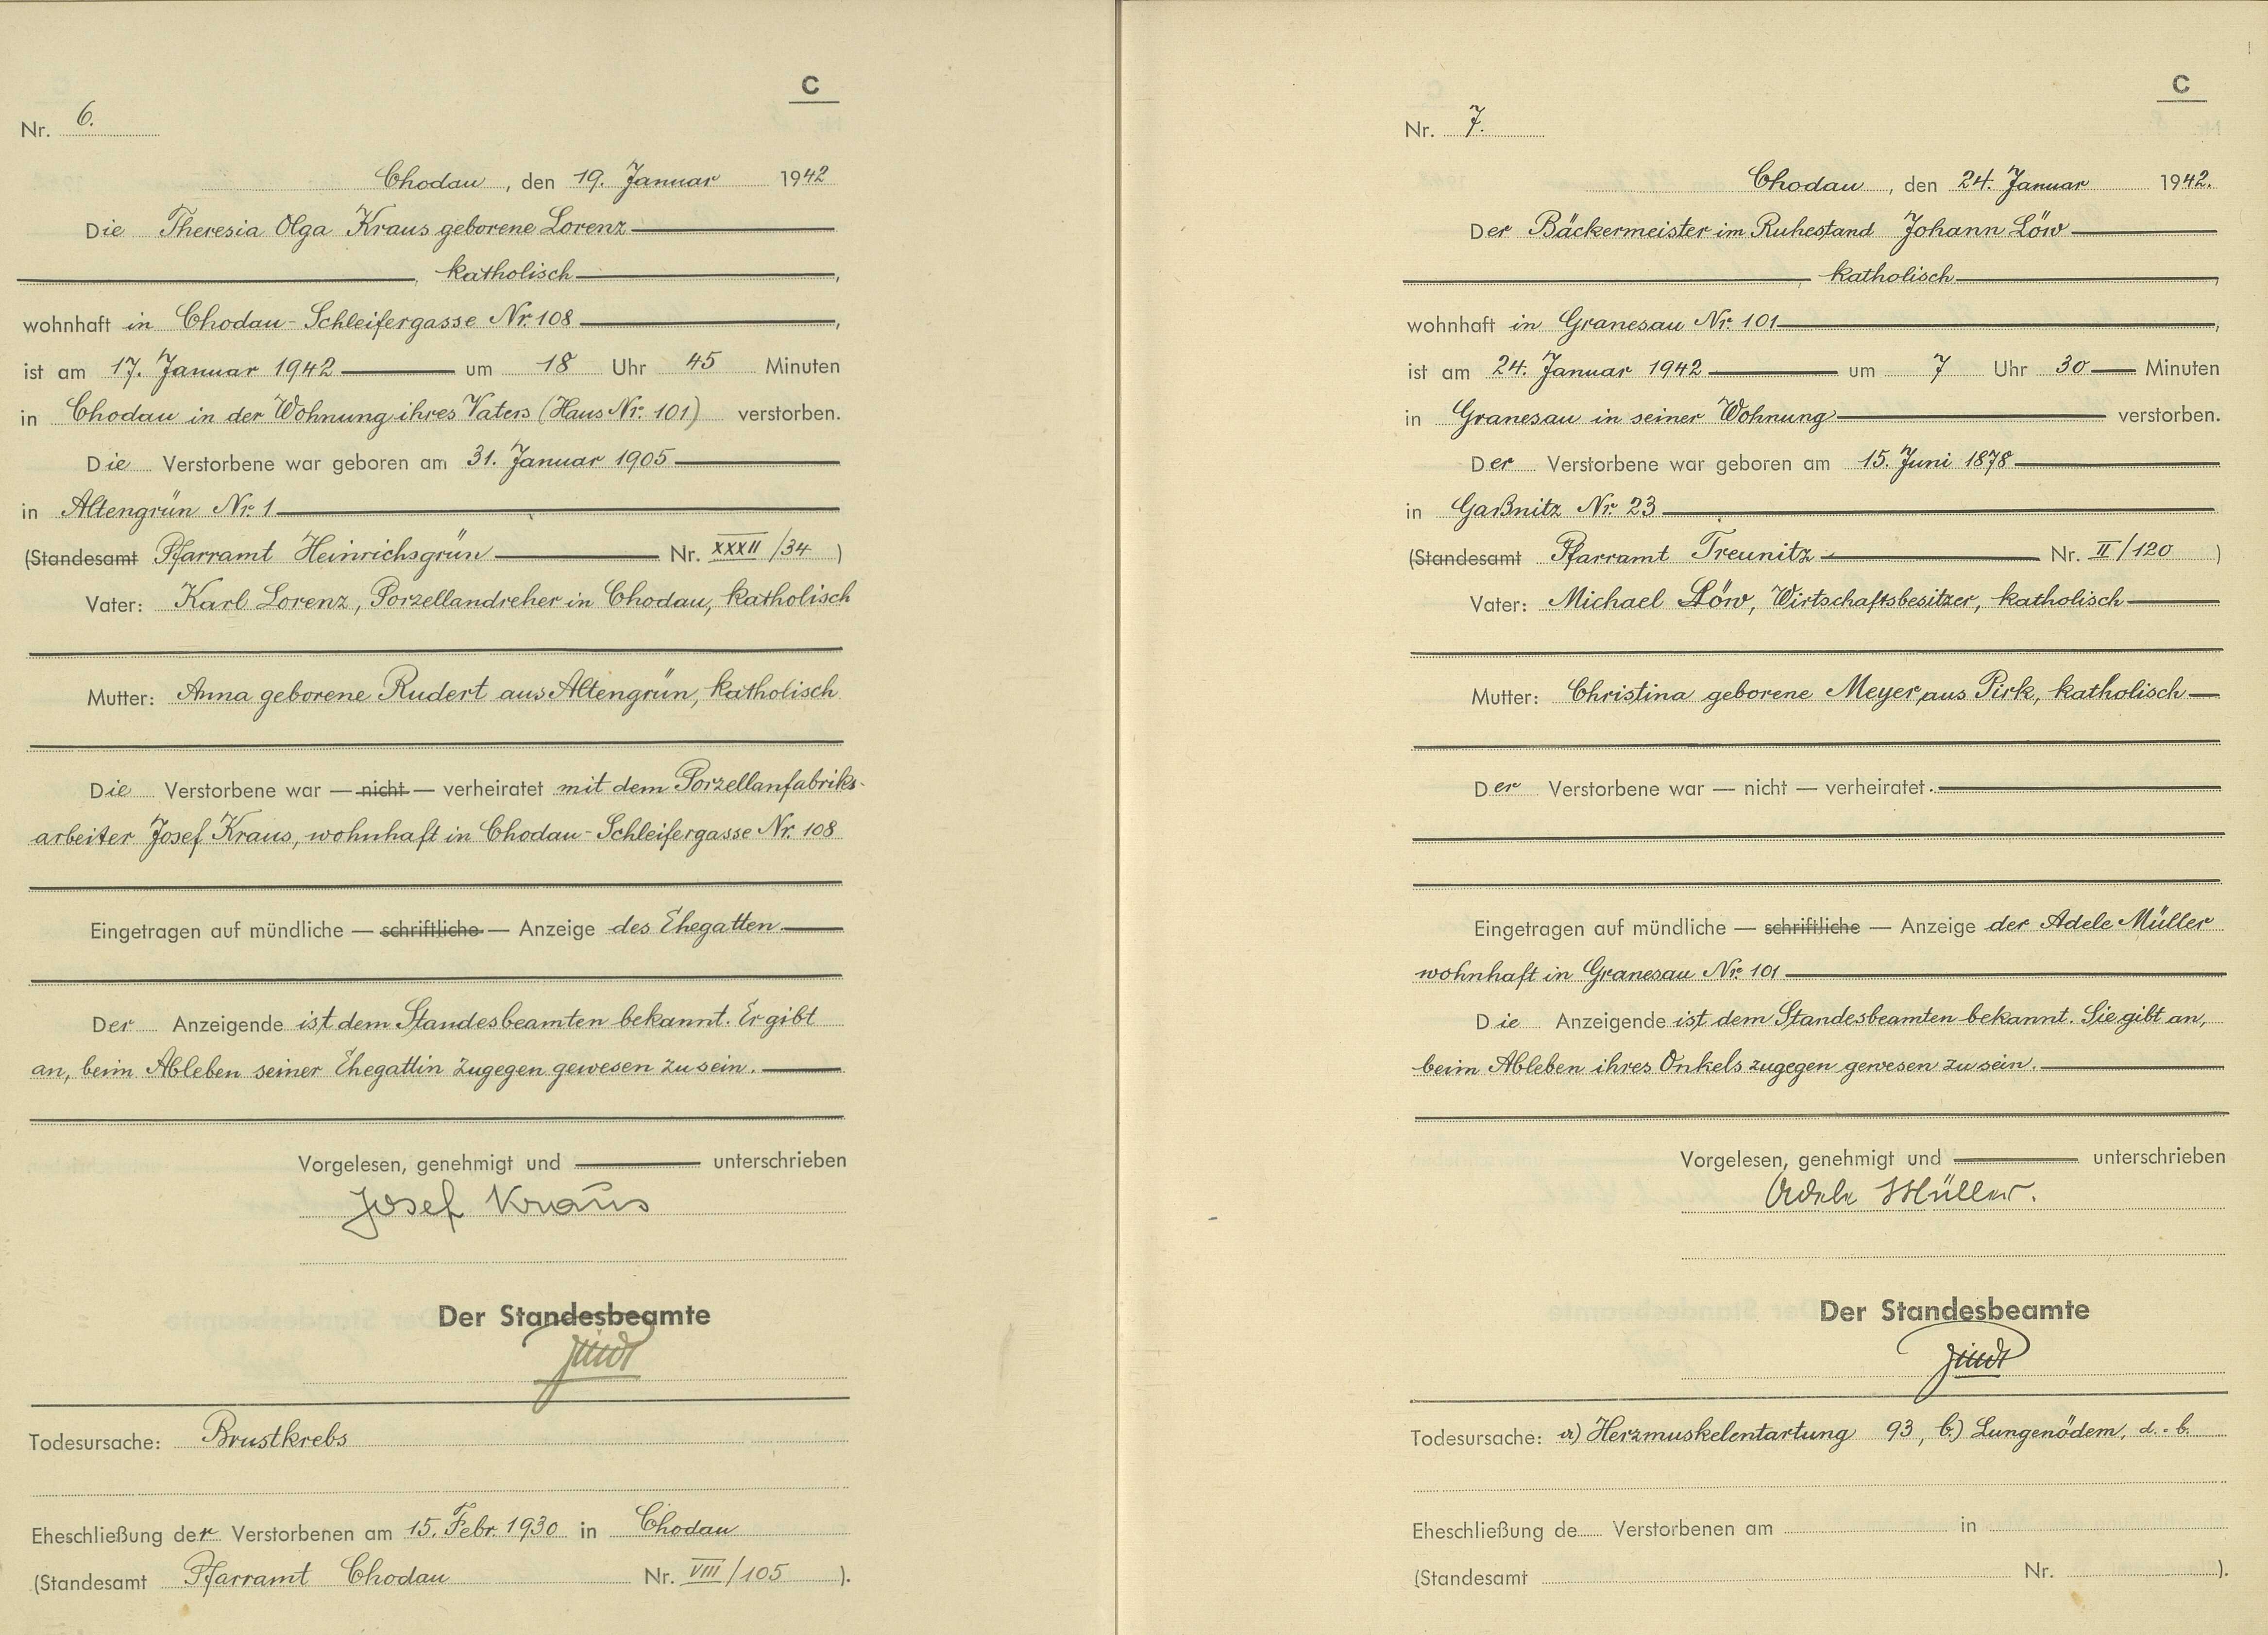 C
Nr. 6.
Chodau, den 19. Januar 1942
Die Theresia Olga Kraus geborene Lorenz
, katholisch,
wohnhaft in Chodau-Schleifergasse Nr. 108,
ist am 17. Januar 1942 um 18 Uhr 45 Minuten
in Chodau in der Wohnung ihres Vaters (Haus Nr. 101) verstorben.
Die Verstorbene war geboren am 31. Januar 1905
in Altengrün Nr. 1
(Standesamt Pfarramt Heinrichsgrün Nr. XXXII/34)
Vater: Karl Lorenz, Porzellandreher in Chodau, katholisch
Mutter: Anna geborene Rudert aus Altengrün, katholisch
Die Verstorbene war — nicht — verheiratet mit dem Porzellanfabriks-
arbeiter Josef Kraus, wohnhaft in Chodau-Schleifergasse Nr. 108
Eingetragen auf mündliche — schriftliche — Anzeige des Ehegatten
Der Anzeigende ist dem Standesbeamten bekannt. Er gibt
an, beim Ableben seiner Ehegattin zugegen gewesen zu sein.
Vorgelesen, genehmigt und unterschrieben
Josef Kraus
Der Standesbeamte
Todesursache: Brustkrebs
Eheschließung der Verstorbenen am 15. Febr. 1930 in Chodau
(Standesamt Pfarramt Chodau Nr. VIII/105).
C
Nr. 7.
Chodau, den 24. Januar 1942.
Der Bäckermeister im Ruhestand Johann Löw
, katholisch,
wohnhaft in Granesau Nr. 101,
ist am 24. Januar 1942 um 7 Uhr 30 Minuten
in Granesau in seiner Wohnung verstorben.
Der Verstorbene war geboren am 15. Juni 1878
in Gaßnitz Nr. 23
(Standesamt Pfarramt Treunitz Nr. II/120)
Vater: Michael Löw, Wirtschaftsbesitzer, katholisch
Mutter: Christina geborene Meyer aus Pirk, katholisch
Der Verstorbene war — nicht — verheiratet.
Eingetragen auf mündliche — schriftliche — Anzeige der Adele Müller
wohnhaft in Granesau Nr. 101
Die Anzeigende ist dem Standesbeamten bekannt. Sie gibt an,
beim Ableben ihres Onkels zugegen gewesen zu sein.
Vorgelesen, genehmigt und unterschrieben
Adele Müller.
Der Standesbeamte
Todesursache: a) Herzmuskelentartung 93, b.) Lungenödem, d. b.
Eheschließung de Verstorbenen am in
(Standesamt Nr. ).